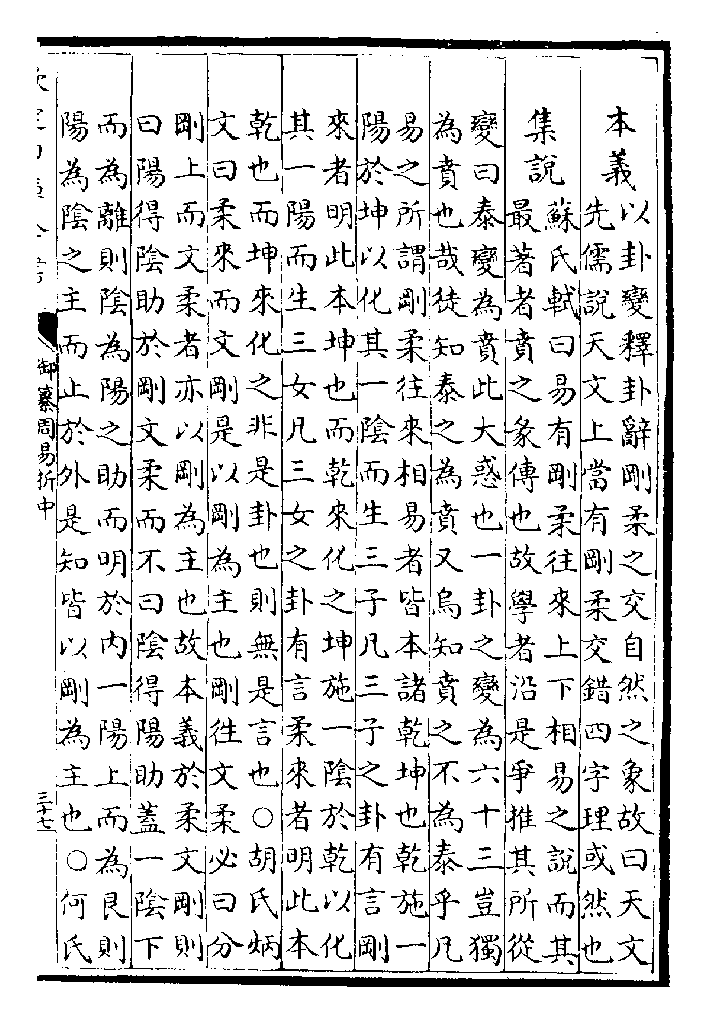 本義
以卦變釋卦辭剛柔之交自然之象故曰天文
先儒說天文上當有剛柔交錯四字理或然也
集說
蘇氏軾曰易有剛柔往來上下相易之說而其
最著者賁之彖傳也故學者沿是爭推其所從
變曰泰變為賁此大惑也一卦之變為六十三豈獨
為賁也哉徒知泰之為賁又烏知賁之不為泰乎凡
易之所謂剛柔往來相易者皆本諸乾坤也乾施一
陽於坤以化其一陰而生三子凡三子之卦有言剛
來者明此本坤也而乾來化之坤施一陰於乾以化
其一陽而生三女凡三女之卦有言柔來者明此本
乾也而坤來化之非是卦也則無是言也○胡氏炳
文曰柔來而文剛是以剛為主也剛往文柔必曰分
剛上而文柔者亦以剛為主也故本義於柔文剛則
曰陽得陰助於剛文柔而不曰陰得陽助蓋一陰下
而為離則陰為陽之助而明於內一陽上而為艮則
陽為陰之主而止於外是知皆以剛為主也○何氏
御纂周易折中
三十七